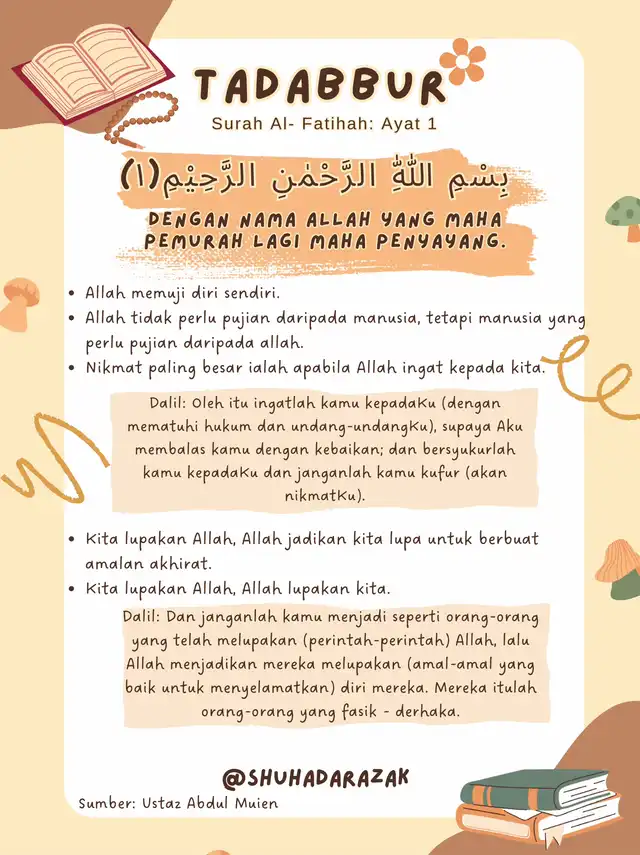 TADABBUR
Surah Al- Fatihah: Ayat 1
بِسْمِ اللّٰهِ الرَّحْمٰنِ الرَّحِيْمِ(١)
DENGAN NAMA ALLAH YANG MAHA
PEMURAH LAGI MAHA PENYAYANG.
• Allah memuji diri sendiri.
• Allah tidak perlu pujian daripada manusia, tetapi manusia yang
perlu pujian daripada allah.
• Nikmat paling besar ialah apabila Allah ingat kepada kita.
Dalil: Oleh itu ingatlah kamu kepadaKu (dengan
mematuhi hukum dan undang-undangKu), supaya Aku
membalas kamu dengan kebaikan; dan bersyukurlah
kamu kepadaKu dan janganlah kamu kufur (akan
nikmatKu).
• Kita lupakan Allah, Allah jadikan kita lupa untuk berbuat
amalan akhirat.
• Kita lupakan Allah, Allah lupakan kita.
Dalil: Dan janganlah kamu menjadi seperti orang-orang
yang telah melupakan (perintah-perintah) Allah, lalu
Allah menjadikan mereka melupakan (amal-amal yang
baik untuk menyelamatkan) diri mereka. Mereka itulah
orang-orang yang fasik - derhaka.
@SHUHADARAZAK
Sumber: Ustaz Abdul Muien